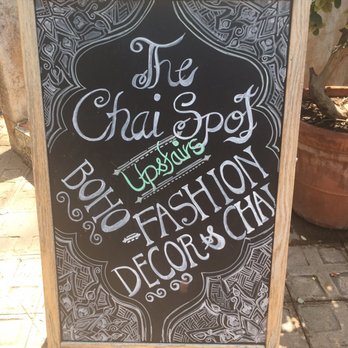 The
Chai Spot
Upstairs
BOHO - FASHION
DECOR & CHAI